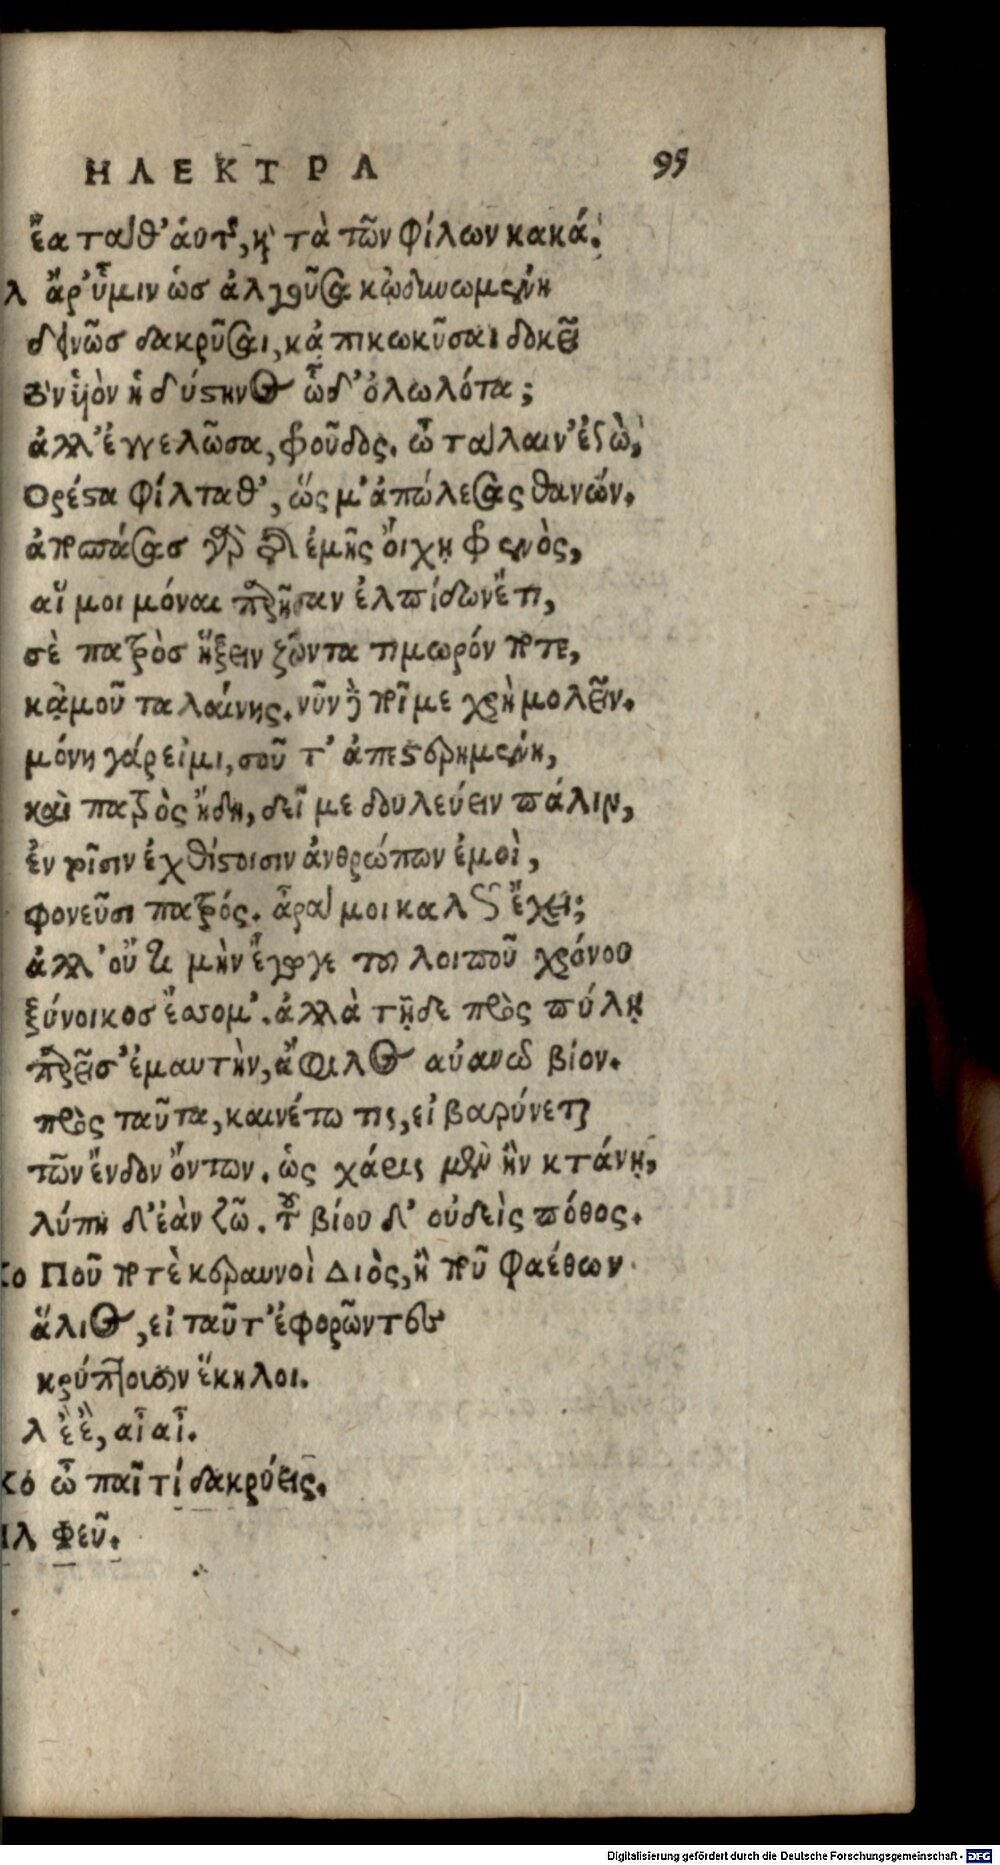 ΗΛΕΚΤΡΑ 95
ἔα τά θ' αὑτῆς, καὶ τὰ τῶν φίλων κακά.
λ ἆρ' ὑμὶν ὡσ ἀλγοῦσα κὠδυνωμένη
δεινῶσ δακρῦσαι, κἀπικωκῦσαι δοκεῖ
τὸν υἱὸν ἡ δύστηνος ὧδ' ὀλωλότα;
ἀλλ' ἐγγελῶσα, φροῦδος. ὦ τάλαιν' ἐγὼ,
Ορέστα φίλταθ', ὥς μ' ἀπώλεσας θανών.
ἀποσπάσασ γὰρ τῆς ἐμῆς οἴχῃ φρενὸς,
αἵ μοι μόναι παρῆσαν ἐλπίδων ἔτι,
σὲ πατρὸσ ἥξειν ζῶντα τιμωρόν ποτε,
κᾀμοῦ ταλαίνης. νῦν δὲ ποῖ με χρὴ μολεῖν.
μόνη γάρ εἰμι, σοῦ τ' ἀπεστερημένη,
καὶ πατρὸς ἤδη, δεῖ με δουλεύειν πάλιν,
ἐν τοῖσιν ἐχθίστοισιν ἀνθρώπων ἐμοὶ,
φονεῦσι πατρός. ἆρά μοι καλῶς ἔχει;
ἀλλ' οὔ τι μὴν ἔγωγε τοῦ λοιποῦ χρόνου
ξύνοικοσ ἔσομ'. ἀλλὰ τῇδε πρὸς πύλῃ
παρεῖσ' ἐμαυτὴν, ἄφιλος αὐανῶ βίον.
πρὸς ταῦτα, καινέτω τις, εἰ βαρύνεται
τῶν ἔνδον ὄντων. ὡς χάρις μὲν ἢν κτάνῃ,
λύπη δ' ἐὰν ζῶ. τοῦ βίου δ' οὐδεὶς πόθος.
Χο Ποῦ ποτὲ κεραυνοὶ Διὸς, ἢ ποῦ φαέθων
ἅλιος, εἰ ταῦτ' ἐφορῶντες
κρύπτουσιν ἕκηλοι.
λ ἒ ἒ, αἶ αἶ.
Χο ὦ παῖ τί δακρύεις.
Ηλ Φεῦ.
Digitalisierung gefördert durch die Deutsche Forschungsgemeinschaft - DFG